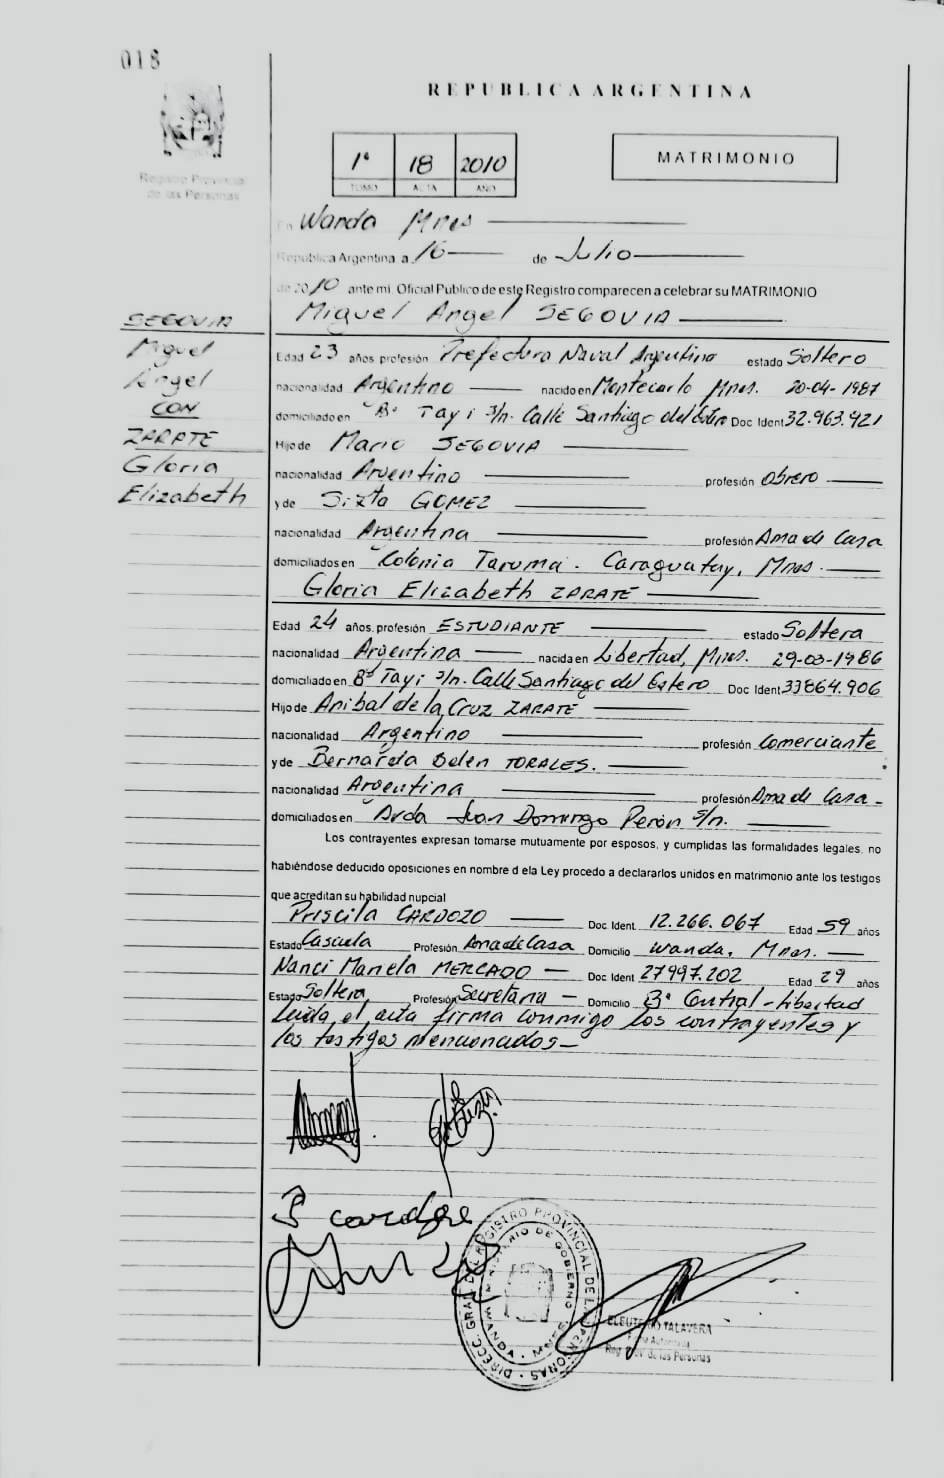 018
REPUBLICA ARGENTINA
Registro Provincial
de las Personas
1º 18 2010
TOMO ACTA AÑO
MATRIMONIO
En Wanda Mnes
Republica Argentina a 16 de Julio
de 2010 ante mi, Oficial Publico de este Registro comparecen a celebrar su MATRIMONIO
Miguel Angel SEGOVIA
SEGOVIA
Miguel
Angel
CON
ZARATE
Gloria
Elizabeth
Edad 23 años profesión Prefectura Naval Argentina estado Soltero
nacionalidad Argentino nacido en Montecarlo Mnes. 20-04-1987
domiciliado en Bº Tayi s/n. Calle Santiago del Estero Doc Ident 32.963.921
Hijo de Mario SEGOVIA
nacionalidad Argentino profesión Obrero
y de Sixta GOMEZ
nacionalidad Argentina profesión Ama de Casa
domiciliados en Colonia Taruma. Caraguatay, Mnes.
Gloria Elizabeth ZARATE
Edad 24 años, profesión ESTUDIANTE estado Soltera
nacionalidad Argentina nacida en Libertad, Mnes. 29-03-1986
domiciliado en Bº Tayi s/n. Calle Santiago del Estero Doc Ident 33864.906
Hijo de Anibal de la Cruz ZARATE
nacionalidad Argentino profesión Comerciante
y de Bernarda Belén TORALES.
nacionalidad Argentina profesión Ama de Casa
domiciliados en Avda Juan Domingo Perón s/n.
Los contrayentes expresan tomarse mutuamente por esposos, y cumplidas las formalidades legales, no
habiéndose deducido oposiciones en nombre d ela Ley procedo a declararlos unidos en matrimonio ante los testigos
que acreditan su habilidad nupcial
Priscila CARDOZO Doc Ident 12.266.067 Edad 59 años
Estado Casada Profesión Ama de Casa Domicilio Wanda, Mnes.
Nanci Mariela MERCADO Doc Ident 27997.202 Edad 29 años
Estado Soltera Profesión Secretaria Domicilio Bº Central-Libertad
Leida el acta firma conmigo los contrayentes y
los testigos mencionados
DIRECC. GRAL. DEL REGISTRO PROVINCIAL DE LAS PERSONAS
MINISTERIO DE GOBIERNO
WANDA - MNES
ELEUTERIO TALAVERA
Reg. Prov. de las Personas